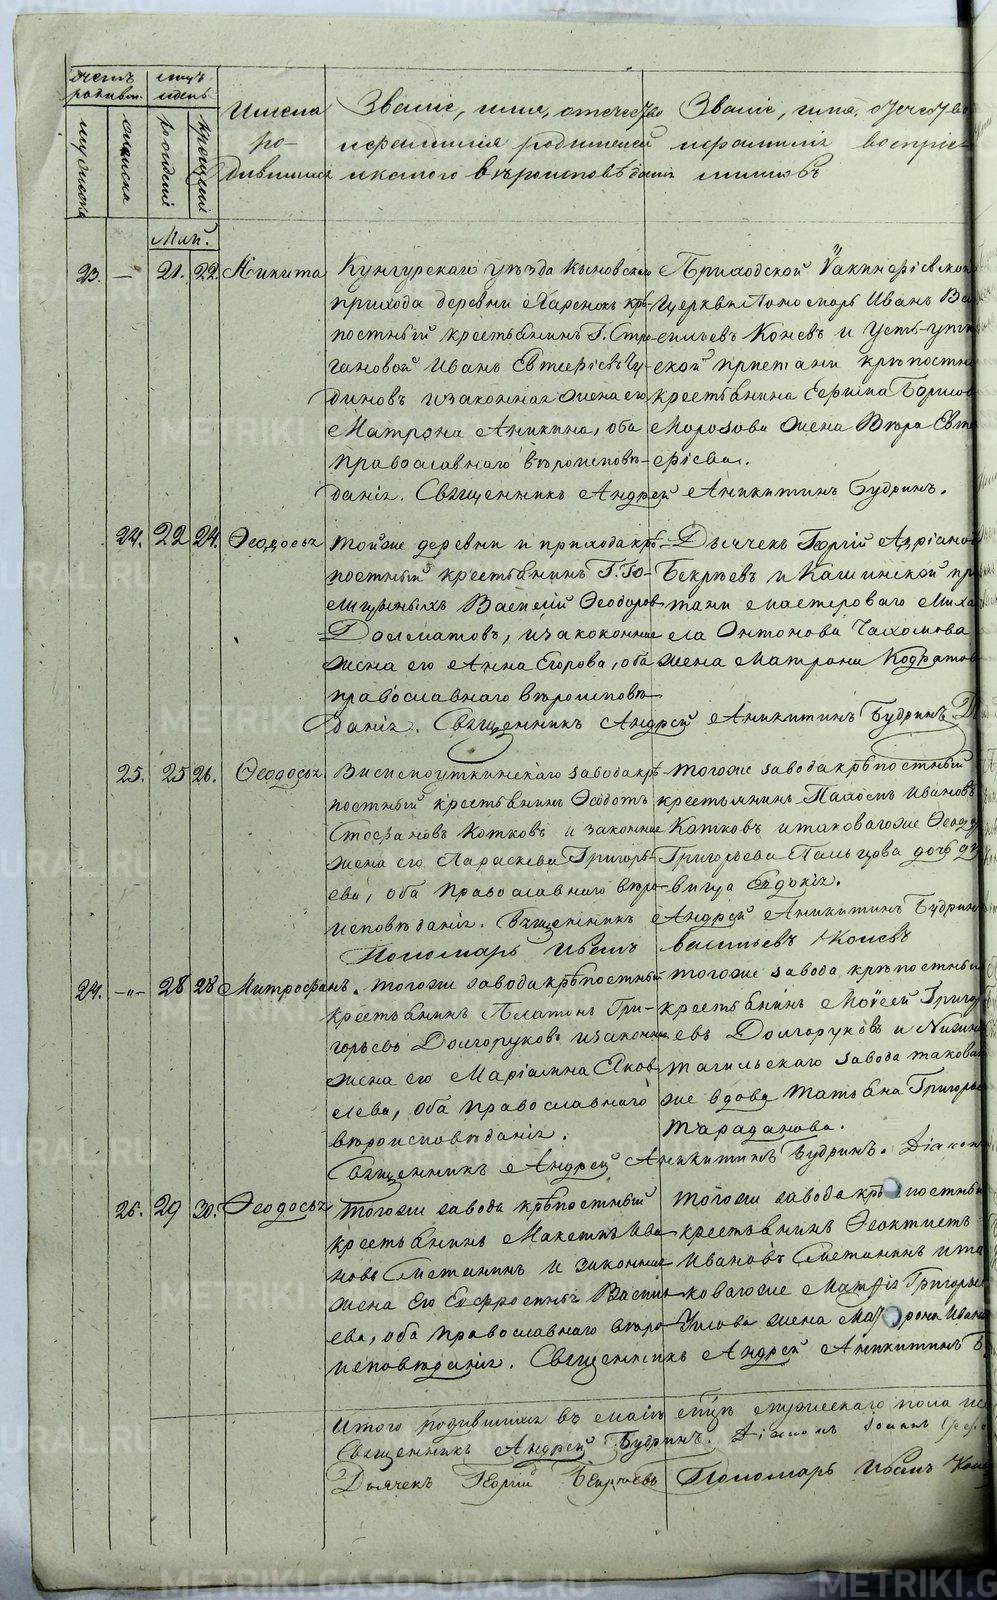 Счетъ родивш.
мужеска
женска
Мцъ и день
рожденія
крещенія
Имена ро-
дившихся
Званіе, имя, отечество
и фамилія родителей
и какого вѣроисповѣданія
Званіе, имя, отечество
и фамилія воспріем
никовъ
Май.
23. — 21. 22. Никита
Кунгурскаго уѣзда Кыновскаго
прихода деревни крѣ-
постный крестьянинъ Г. Стро-
гановой Иванъ Евтифіевъ Чу-
диновъ и законная жена его
Матрона Аникина, оба
православнаго вѣроисповѣ-
данія. Священникъ Андрей Аникитинъ Будринъ.
Приходской
церкви Пономарь Иванъ Ва
сильевъ Коневъ и Усть-утк
ской пристани крѣпостна
крестьянина Борисов
Морозова жена Вѣра Евти
фіева.
24. 22 24. Ѳеодосья
Той же деревни и прихода крѣ-
постный крестьянинъ Г. Го-
лицыныхъ Василій Ѳеодоров
Долматовъ, и законная
жена его Анна Егорова, оба
православнаго вѣроисповѣ
данія. Священникъ Андрей Аникитинъ Будринъ Д
Дьячекъ Георгій Адріанов
Бекряевъ и Кашинской при
тани мастероваго Миха
ла Антонова
жена Матрона Кодратов
25. 25 26. Ѳеодосья
Висимоуткинскаго завода крѣ
постный крестьянинъ Ѳедотъ
Стефановъ Котковъ и законная
жена его Параскева Григорь-
ева, оба православнаго вѣро-
исповѣданія. Священникъ Андрей Аникитинъ Будринъ
Пономарь Иванъ Васильевъ Коневъ
Того же завода крѣпостный
крестьянинъ Пахомъ Ивановъ
Котковъ и таковаго же Ѳеодо
Григорьева Пальцова дочь дѣ
вица Евдокія.
24. —„— 28 28 Митрофанъ.
Того же завода крѣпостный
крестьянинъ Платонъ Гри-
горьевъ Долгоруковъ и законна
жена его Маріамна Яков
лева, оба православнаго
вѣроисповѣданія.
Священникъ Андрей Аникитинъ Будринъ. Діакон
Того же завода крѣпостный
крестьянинъ Моѵсей Григор
евъ Долгоруковъ и Нижне
тагильскаго завода таковаг
же вдова Татьяна Григорье
Тараданова.
26. 29 30. Ѳеодосья
Того же завода крѣпостный
крестьянинъ Максимъ Ива
новъ Сметанинъ и законная
жена его Ефросинья Василь
ева, оба православнаго вѣро
исповѣданія. Священникъ Андрей Аникитинъ Б
Того же завода крѣпостный
крестьянинъ Ѳеоктистъ
Ивановъ Сметанинъ и та
коваго же Григорье
Ушова жена Матрона Ивано
Итого родившихся въ маѣ мцѣ мужескаго пола
Священникъ Андрей Будринъ. Діаконъ Іоаннъ
Дьячекъ Георгій Бекряевъ Пономарь Иванъ Коне
METRIKI.GASO-URAL.RU